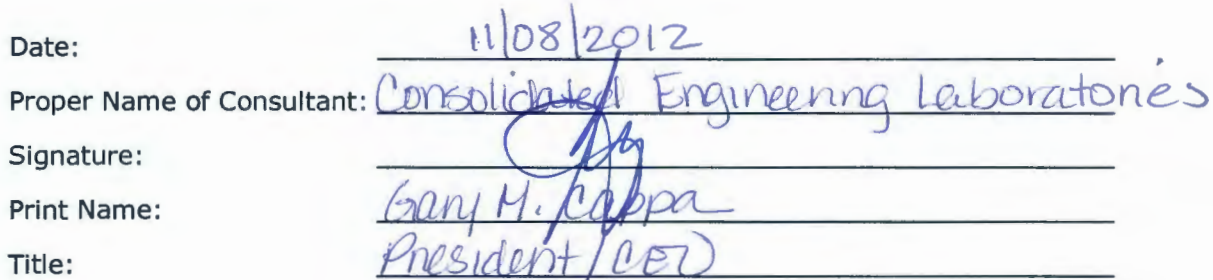 Date: 11/08/2012
Proper Name of Consultant: Consolidated Engineering Laboratories
Signature:
Print Name: Gary M. Cappa
Title: President/CEO